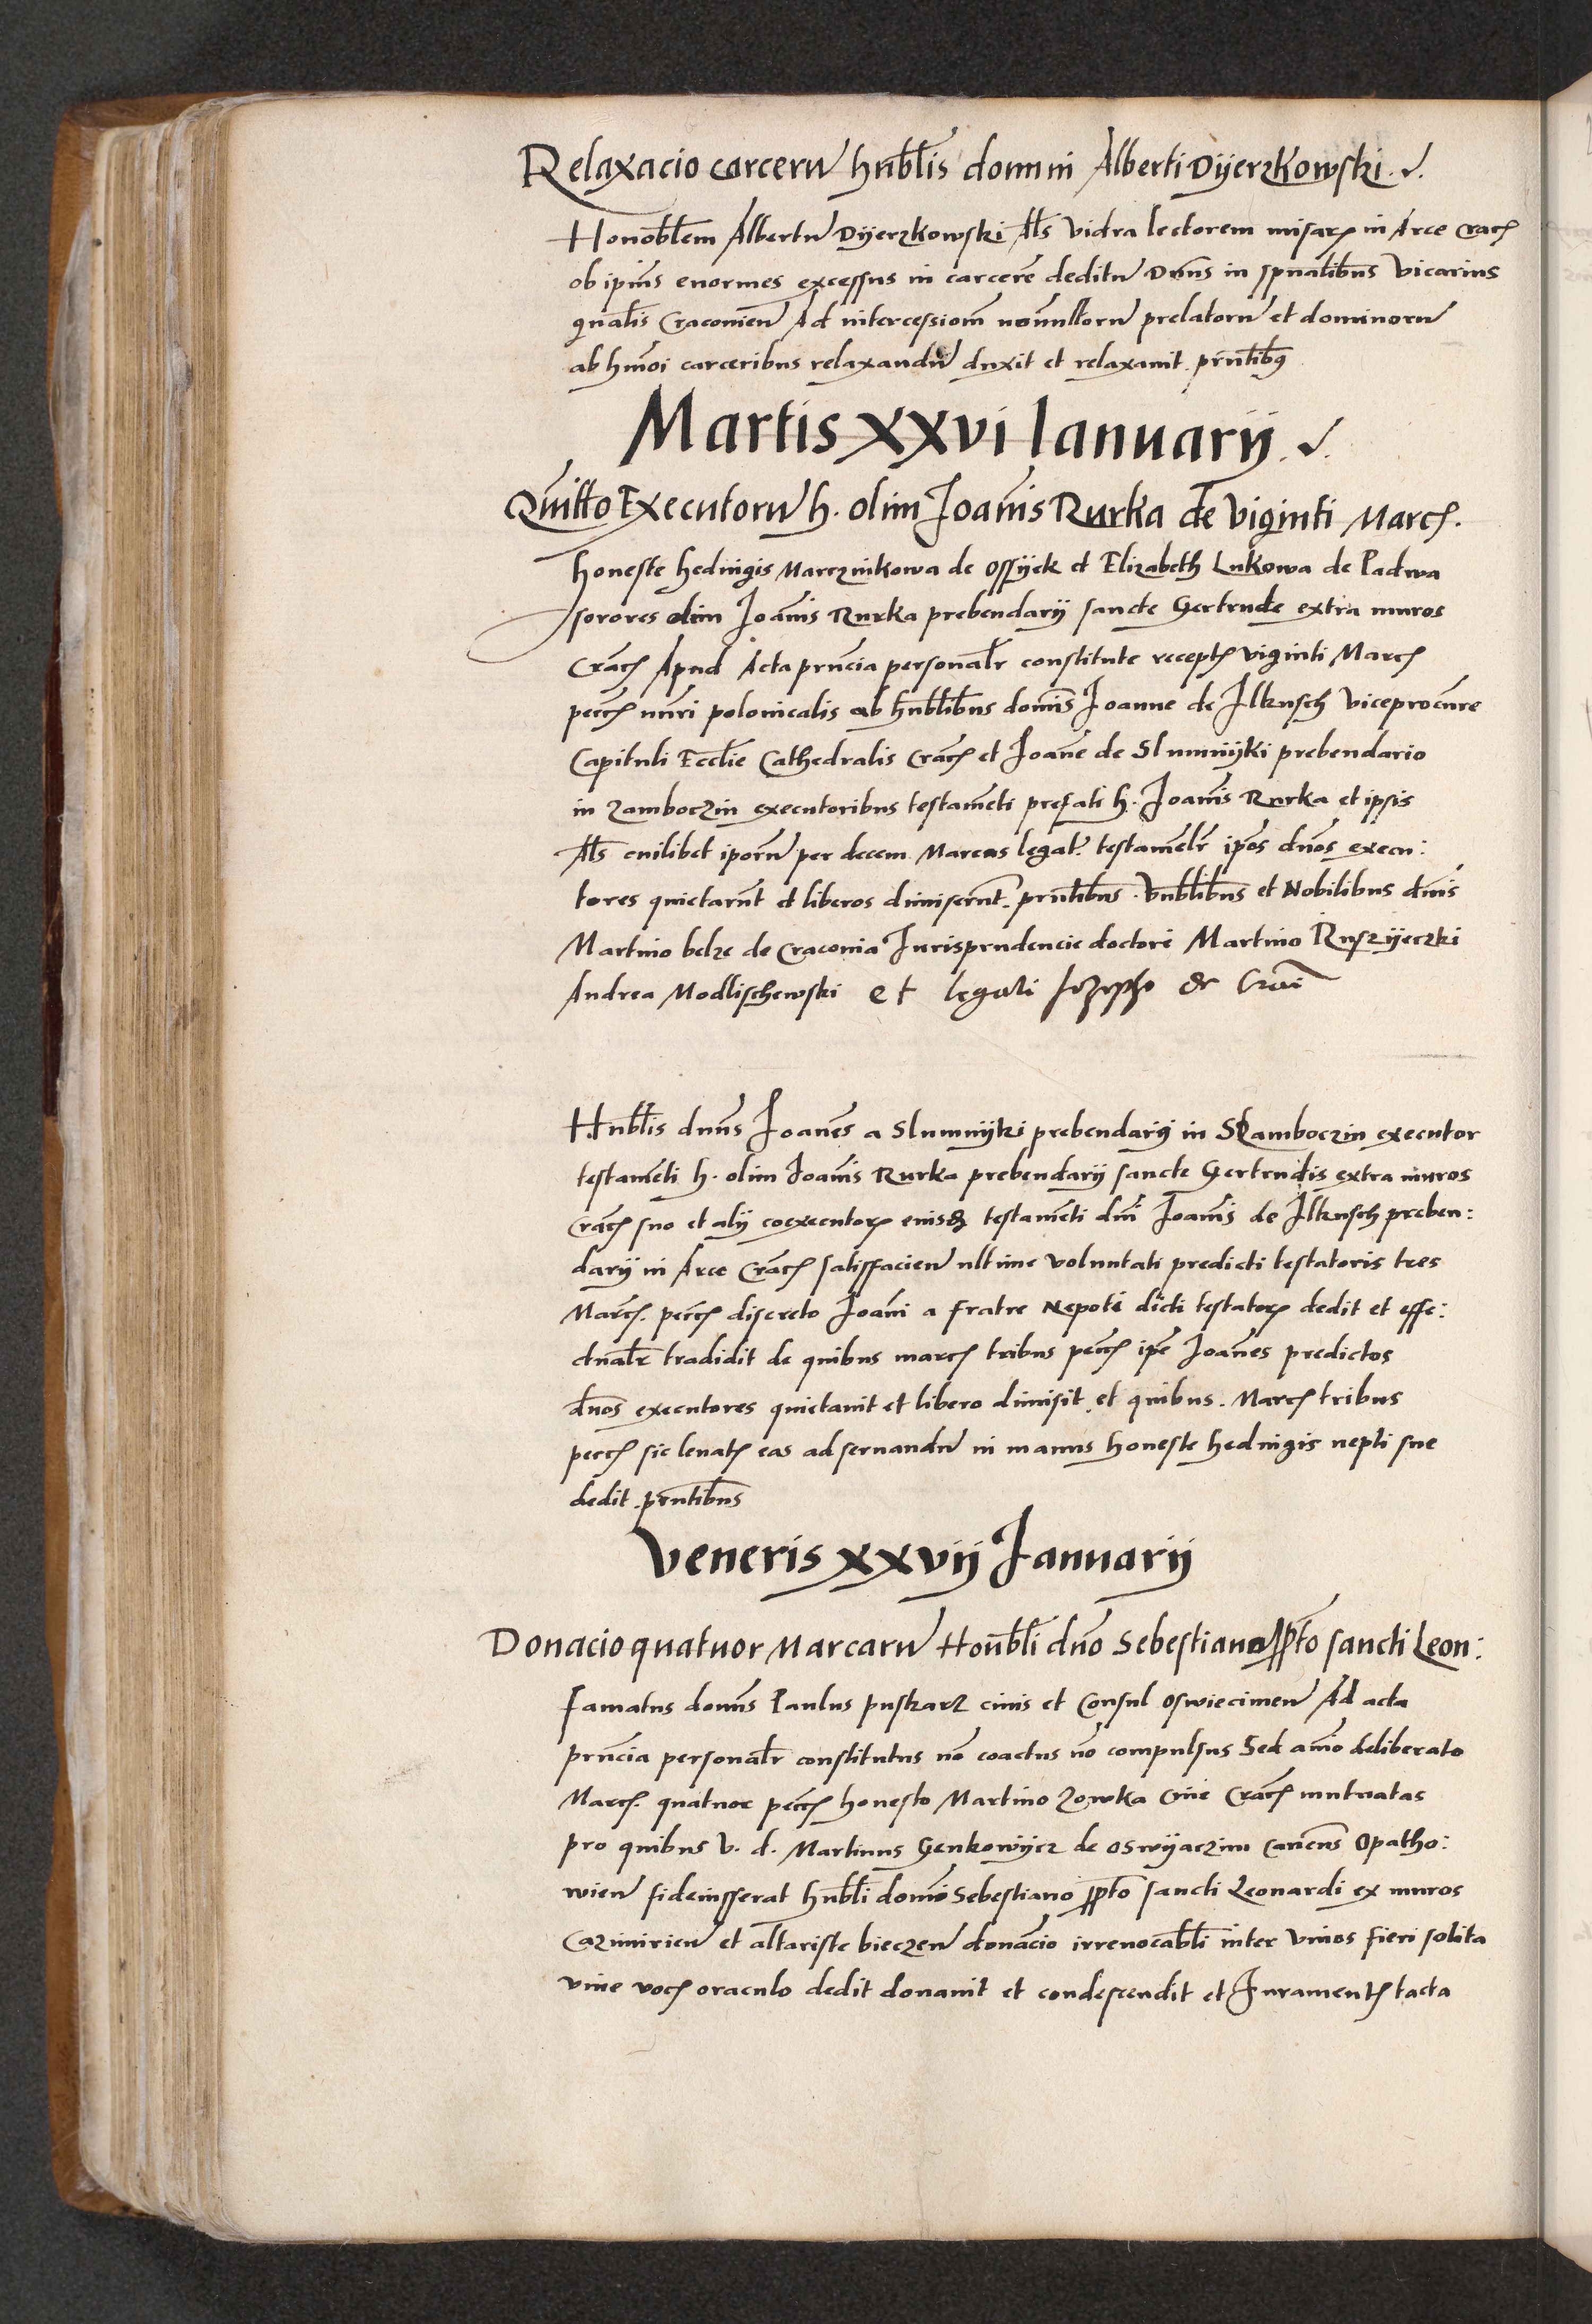 Relaxacio carceru hnblis domini Alberti Dyerzkowski
Honoblem Albertu Dyerzkowski Als Vidra lectorem misarz in Arce Crac
ob ipius enormes excessus in carcere deditu Dnus in spualibus Vicarius
gnalis Craconien Ad intercessiom nonnulloru prelatoru et dominoru
ab hmoi carceribus relaxandu duxit et relaxavit. prntibus
Martis xxvi Ianuarij
Quitto Executoru h. olim Joanis Rurka de Viginti Marc.
honeste hedvigis Marcznikowa de Ossyek et Elizabeth Lukowa de Padwa
sorores olim Joanis Rurka prebendarij sancte Gertrude extra muros
Crac Apud Acta prncia personalr constitute recept viginti Marc
pecc nuri polonicalis ab hnblibus domis Joanne de Ilkusch Viceprocure
Capituli Ecclie Cathedralis Crac et Joane de Slumnyki prebendario
in Zamboczin executoribus testameti prefati h. Joanis Rurka et ipsis
Als cuilibet iporu per decem Marcas legat. testamelr ipos dnos execu:
tores quietarut et liberos dimiserut. prntibus. Vnblibus et Nobilibus dnis
Martino belze de Craconia Jurisprudencie doctore Martino Ruszyeczki
Andrea Modlischewski et
Hnblis dnus Joanes a Slumnyki prebendarij in Szamboczin executor
testameti h. olim Joanis Rurka prebendarij sancte Gertrudis extra muros
Crac suo et alij coexecutorz eiusdz testameti dni Joanis de Ilkusch preben:
darij in Arce Crac satisffacien ultime voluntati predicti testatoris tres
Marc. pecc discreto Joani a fratre Nepoti dicti testatorz dedit et effe:
ctualr tradidit de quibus marc tribus pecc ipe Joanes predictos
dnos executores quietavit et libero dimisit et quibus. Marc tribus
pecc sic levat eas ad servandu in manus honeste hedvigis nepti sue
dedit. prntibus
Veneris xxvij Januarij
Donacio quatuor Marcaru Honbli dno Sebestiano ppto sancti Leon:
Famatus domis Paulus puskarz civis et Consul Oswiecimen Ad acta
prncia personalr constitutus no coactus no compulsus Sed aio deliberato
Marc. quatuor pecc honesto Martino Zowka Cive Crac mutuatas
pro quibus V. d. Martinus Genkowycz de Oswyaczim Canens Opatho:
wien fideiusserat hnbli domi Sebestiano ppto sancti Leonardi ex muros
Cazimirien et altariste bieczen donacio irrevocabli inter Vivos fieri solita
vive voc oraculo dedit donavit et condescendit et Jurament tacta